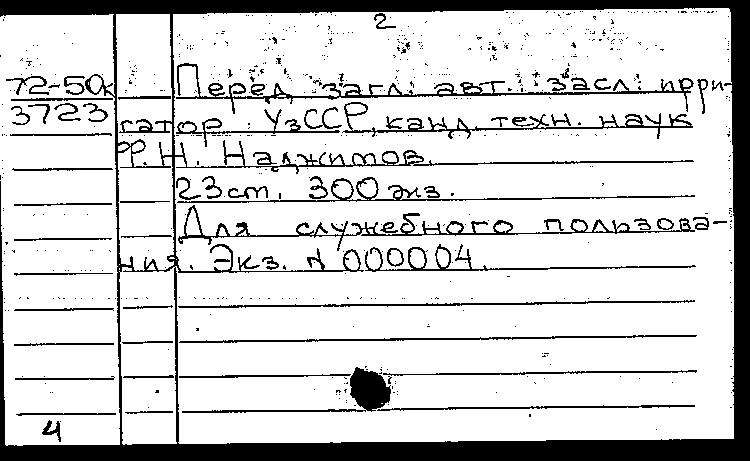 2
72-50к Перед загл: авт.: засл: ирри-
3723 гатор УзССР, канд. техн. наук
Ф.Н. Наджимов.
23 ст. 300 экз.
Для служебного пользова-
ния. Экз. N 000004.
4